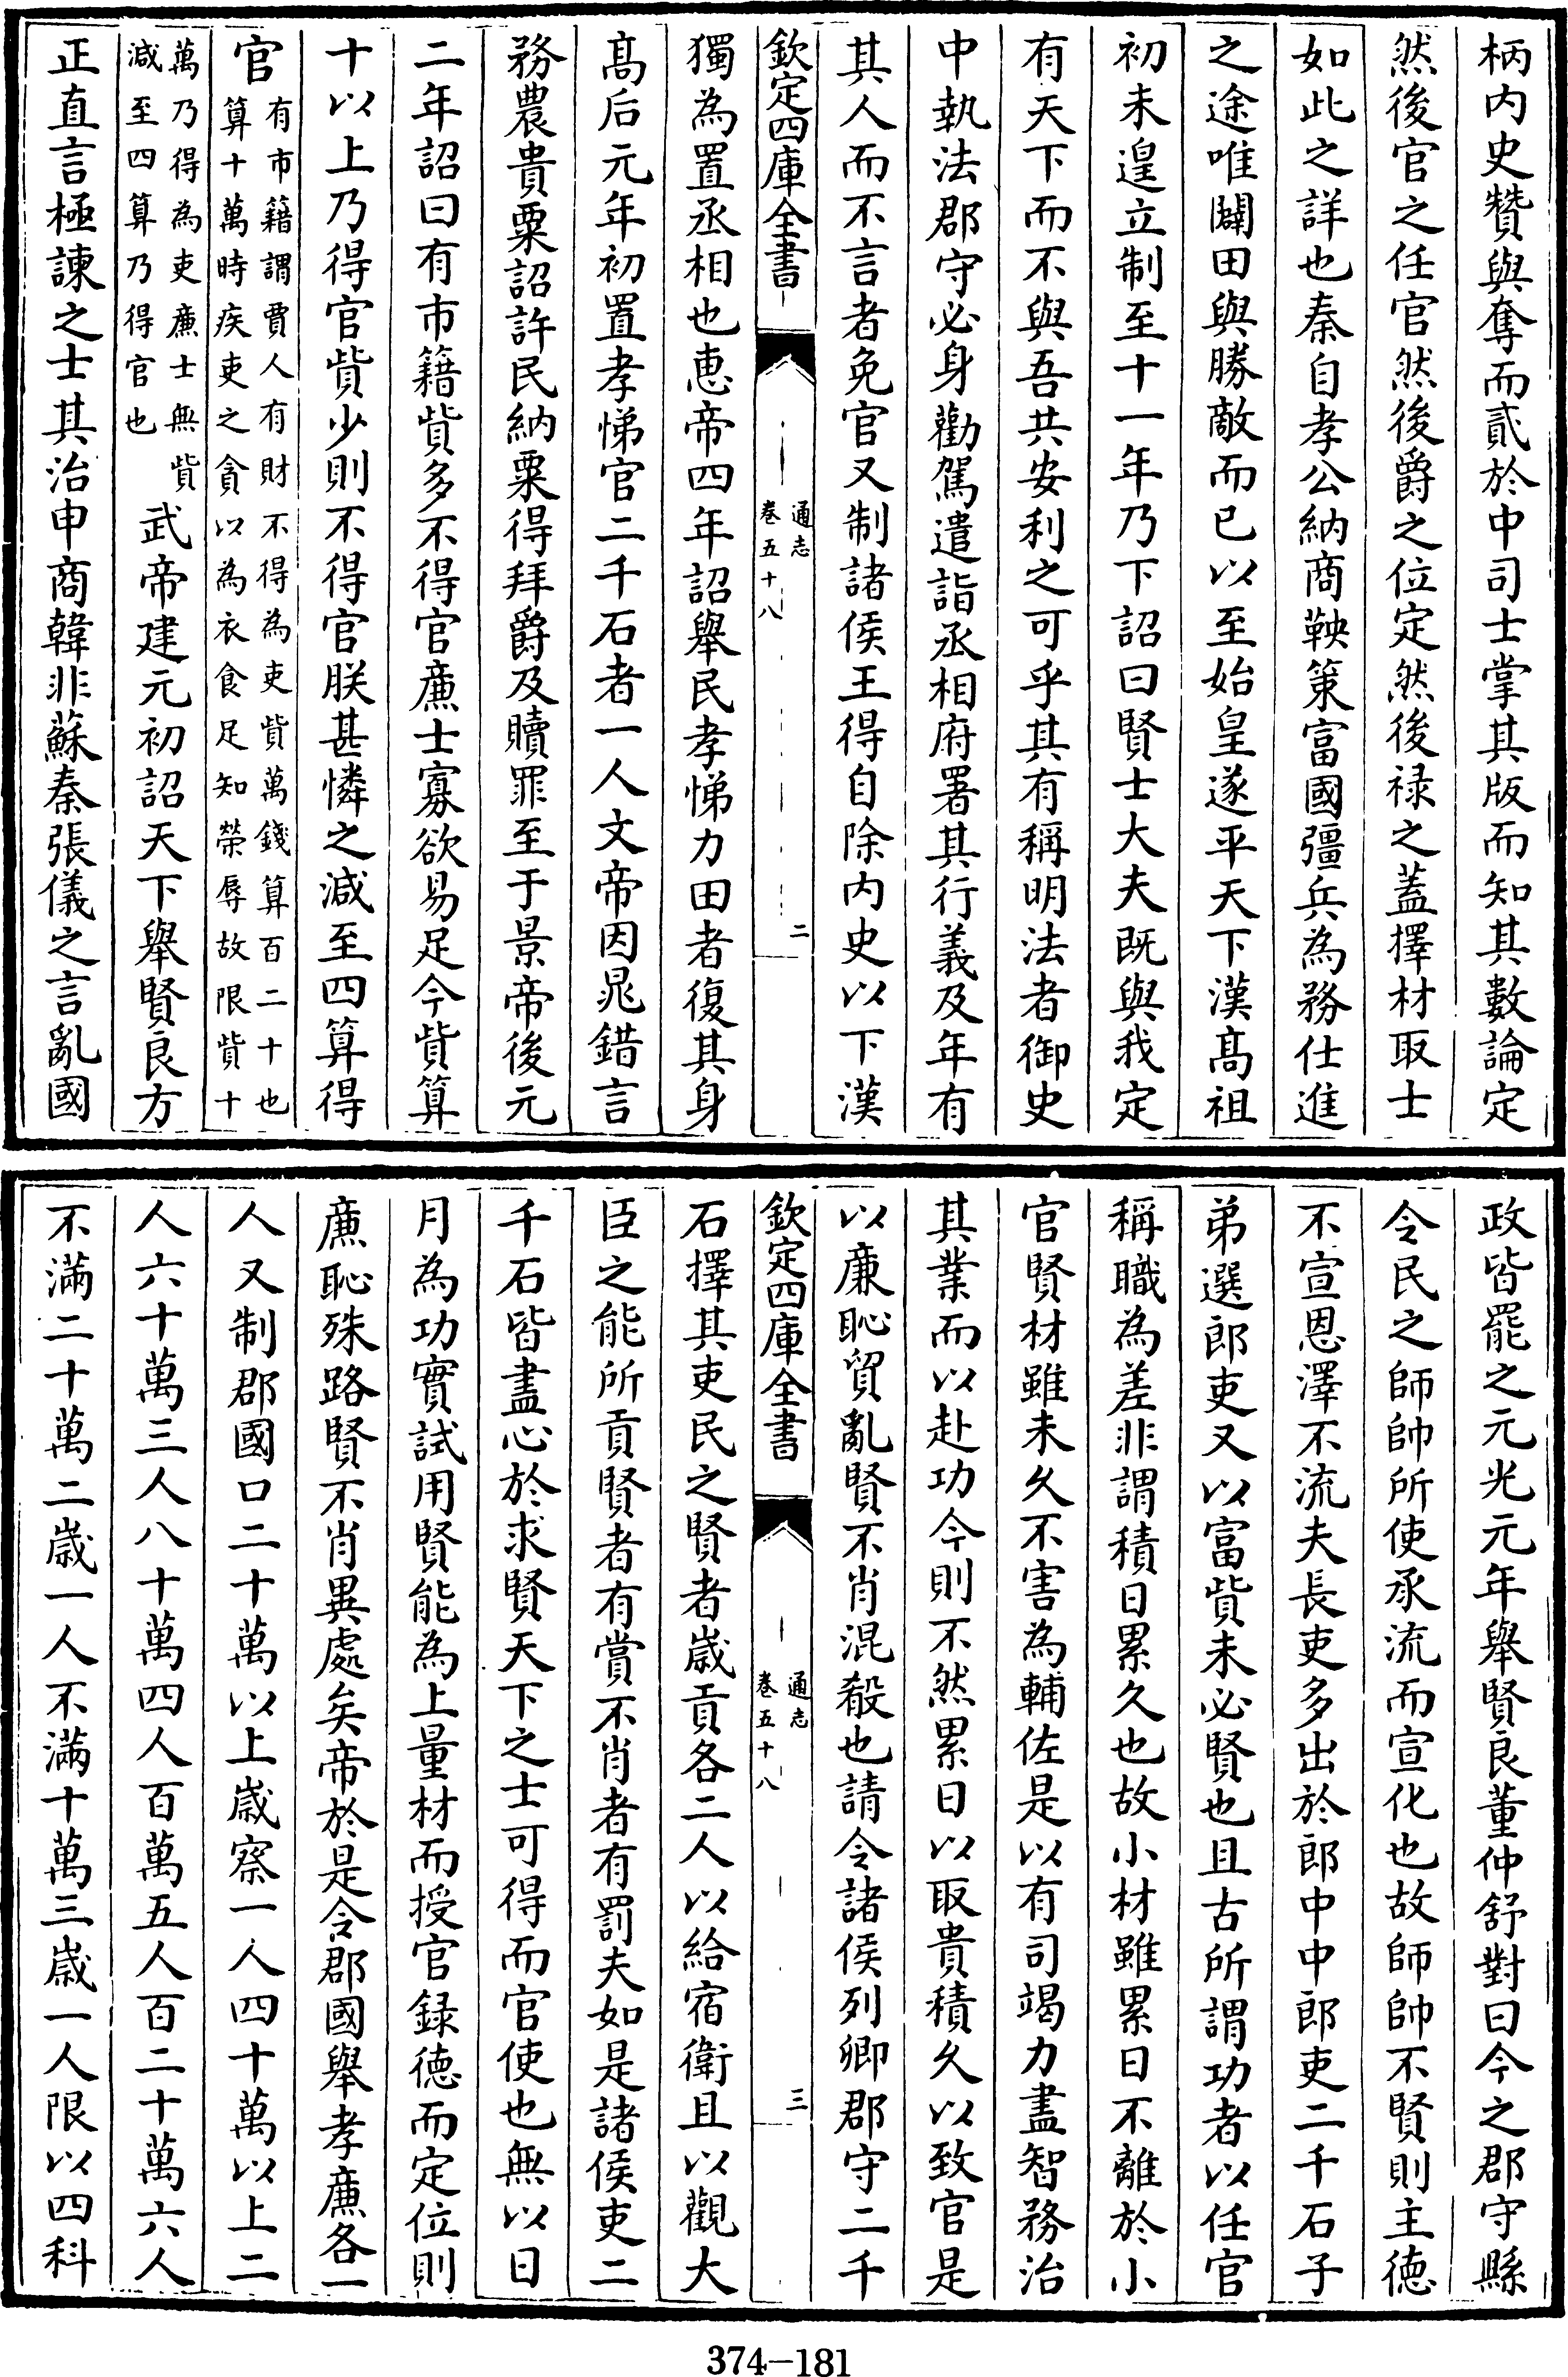 柄内史贊與奪而貳於中司士掌其版而知其數論定
然後官之任官然後爵之位定然後禄之蓋擇材取士
如此之詳也秦自孝公納商鞅策富國彊兵為務仕進
之途唯闢田與勝敵而已以至始皇遂平天下漢髙祖
初未遑立制至十一年乃下詔曰賢士大夫既與我定
有天下而不與吾共安利之可乎其有稱明法者御史
中執法郡守必身勸駕遣詣丞相府署其行義及年有
其人而不言者免官又制諸侯王得自除内史以下漢
欽定四庫全書
通志
卷五十八
二
獨為置丞相也恵帝四年詔舉民孝悌力田者復其身
髙后元年初置孝悌官二千石者一人文帝因晁錯言
務農貴粟詔許民納粟得拜爵及贖罪至于景帝後元
二年詔曰有市籍貲多不得官亷士寡欲易足今貲算
十以上乃得官貲少則不得官朕甚憐之減至四算得
官
有市籍謂賈人有財不得為吏貲萬錢算百二十也
算十萬時疾吏之貪以為衣食足知榮辱故限貲十
萬乃得為吏亷士無貲
減至四算乃得官也
武帝建元初詔天下舉賢良方
正直言極諫之士其治申商韓非蘇秦張儀之言亂國
政皆罷之元光元年舉賢良董仲舒對曰今之郡守縣
令民之師帥所使承流而宣化也故師帥不賢則主徳
不宣恩澤不流夫長吏多出於郎中中郎吏二千石子
弟選郎吏又以富貲未必賢也且古所謂功者以任官
稱職為差非謂積日累久也故小材雖累日不離於小
官賢材雖未久不害為輔佐是以有司竭力盡智務治
其業而以赴功今則不然累日以取貴積久以致官是
以亷恥貿亂賢不肖混殽也請令諸侯列卿郡守二千
欽定四庫全書
通志
卷五十八
三
石擇其吏民之賢者嵗貢各二人以給宿衛且以觀大
臣之能所貢賢者有賞不肖者有罰夫如是諸侯吏二
千石皆盡心於求賢天下之士可得而官使也無以日
月為功實試用賢能為上量材而授官録徳而定位則
亷恥殊路賢不肖異處矣帝於是令郡國舉孝亷各一
人又制郡國口二十萬以上嵗察一人四十萬以上二
人六十萬三人八十萬四人百萬五人百二十萬六人
不滿二十萬二嵗一人不滿十萬三嵗一人限以四科
374-181